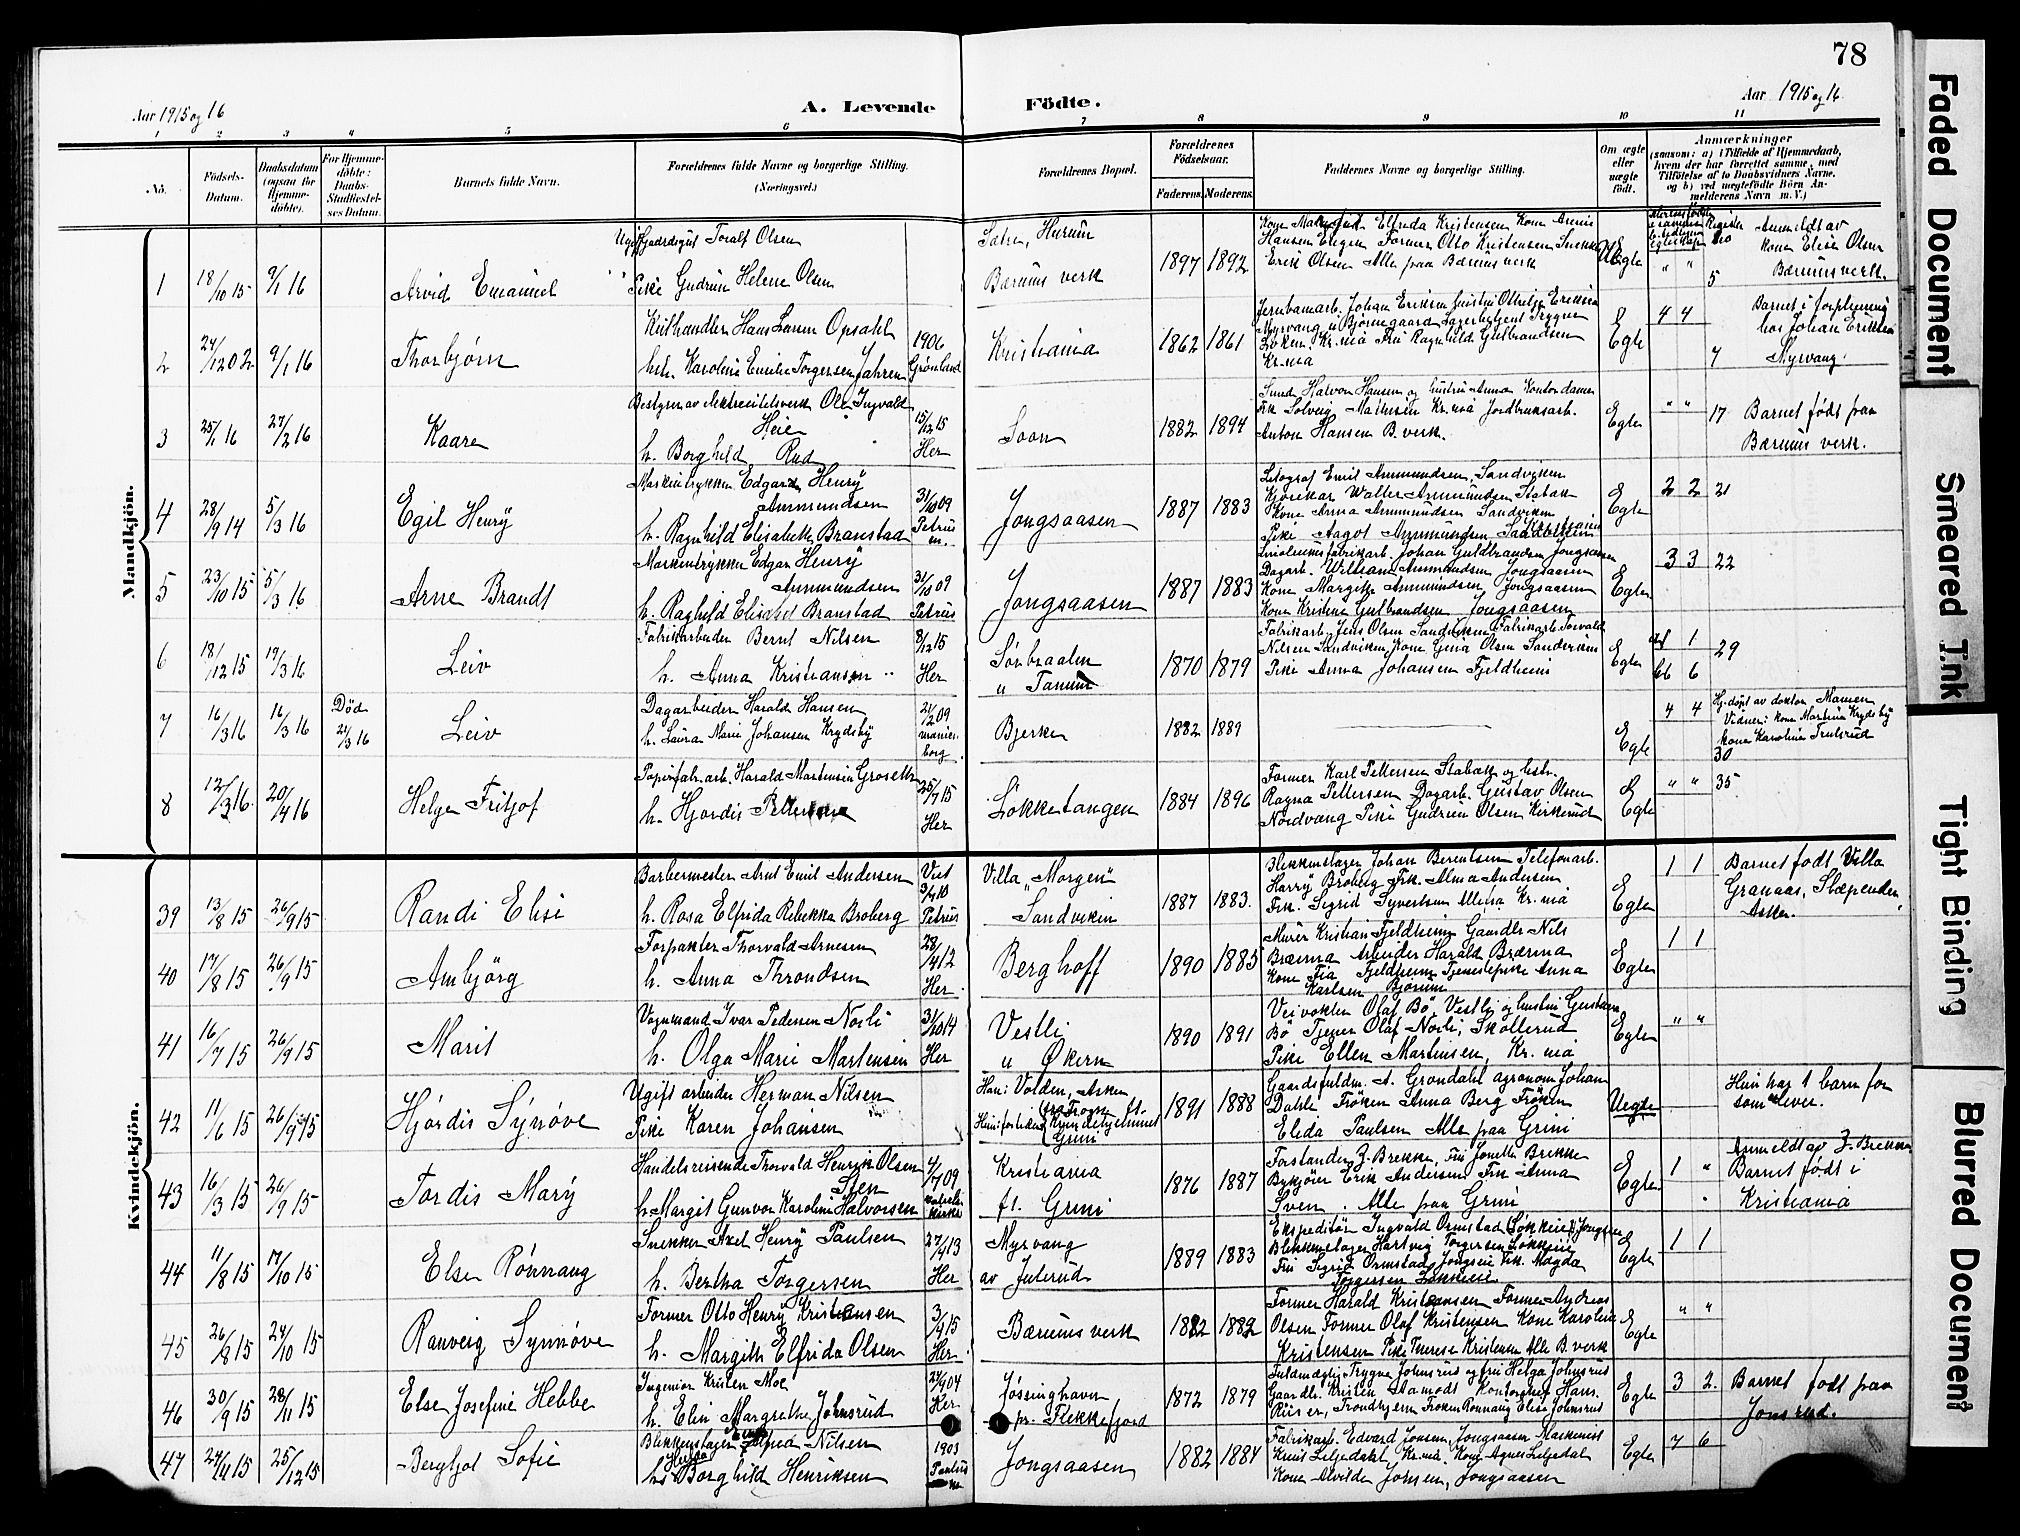 78
Aar 1915 og 16
A. Levende Födte.
Aar 1915 og 16.
1 2 3 4 5 6 7 8 9 10 11
No.
Födsels-Datum.
Daabsdatum (ogsaa for Hjemme-döbte).
For Hjemme-döbte: Daabs-Stadfæstel-ses Datum.
Barnets fulde Navn.
Forældrenes fulde Navne og borgerlige Stilling. (Næringsvei.)
Forældrenes Bopæl.
Forældrenes Födselsaar.
Faderens. Moderens.
Faddernes Navne og borgerlige Stilling.
Om ægte eller uægte födt.
Anmærkninger
(saasom: a) i Tilfælde af Hjemmedaab, hvem der har forrettet samme, med Tilföielse af to Daabsvidners Navne. og b) ved uægtefödte Börn An-melderens Navn m. V.)
Mandkjön.
1 18/10 15 9/1 16 Arvid Emanuel
Ugift Gaardsgut Toralf Olsen
Pike Gudrun Helene Olsen
Sætre, Hurum
Bærums verk
1897 1892
Kone Elfrida Kristensen Kone
Hansen Engen Former Otto Kristensen
Erik Olsen Alle fraa Bærums verk
Uegte
Anmeldt av
Kone Elise Olsen
Bærums verk.
5
2 24/12 02 9/1 16 Thorbjørn
Kulhandler Hans Laurin Opsahl
h. Karoline Emilie Torgersen Jahren
1906
Grønland
Kristiania
1862 1861
Jernbanarb. Johan Eriksen hustru Othelie Eriksen
Myrvang u Bjørnegaard Lagerbetjent Trygve
Løken Kr.nia Fru Ragnhild Gulbrandsen
Kr.nia
Egte
4 4
7
Barnet i forpleining
hos Johan Eriksen
Myrvang
3 25/1 16 27/2 16 Kaare
Bestyrer av elektricitetsverk Ole Ingvald
Heie
h. Borghild Rud
15/12 15
Her
Soon
1882 1894
Smed Halvor Hansen og hustru Anna Kontordame
Frk Solveig Mathisen Kr.nia Jordbruksarb.
Anton Hansen B. verk.
Egte
" " 17
Barnet født paa
Bærums verk.
4 28/9 14 5/3 16 Egil Henry
Maskintrykker Edgar Henry
Ammundsen
h. Ragnhild Elisabeth Branstad
31/10 09
Petrus
m.
Jongsaasen
1887 1883
Litograf Emil Ammundsen, Sandviken
Kjørekar Walter Ammundsen Stabæk
Kone Anna Ammundsen Sandviken
Pike Aagot Ammundsen
Egte
2 2 21
5 23/10 15 5/3 16 Arne Brandt
Maskintrykker Edgar Henry
Ammundsen
h. Raghild Elisabet Branstad
31/10 09
Petrus
Jongsaasen
1887 1883
Linoleumsfabrikarb. Johan Guldbrandsen Jongsaasen
Dagarb. William Ammundsen Jongsaasen
Kone Margith Ammundsen Jongsaasen
Kone Kristine Gulbrandsen Jongsaasen
Egte
3 3 22
6 18/12 15 19/3 16 Leiv
Fabrikarbeider Bernt Nilsen
h. Anna Kristiansen
8/12 15
Her
Sørbraaten
u Tanum
1870 1879
Fabrikarb. Jens Olsen Sandviken Fabrikarb. Torvald
Nilsen Sandviken, Kone Gina Olsen Sandviken
Pike Anna Johansen Fjeldheim
Egte
6 6 29
7 16/3 16 16/3 16
Død
21/3 16
Leiv
Dagarbeider Harald Hansen
h. Laura Marie Johansen Krydsby
21/2 09
Bjerke
1882 1889
Egte
4 4
Hj. døpt av doktor Mamen
Vidner: kone Martine Krydsby
kone Karoline Trulsrud
30
8 12/3 16. 20/4 16 Helge Fritjof
Papirfabr.arb. Harald Martinsen Groseth
h. Hjordis Pettersen
25/7 15
Her
Løkketangen
1884 1896
Former Karl Pettersen Stabæk og hstr.
Ragna Pettersen Dagarb. Gustav Olsen
Nordvang Pike Gudrun Olsen Kirkerud
Egte
" " 35
Kvindekjön.
39 13/8 15 26/9 15 Randi Elise
Barbermester Arnt Emil Andersen
h. Rosa Elfrida Rebekka Broberg
Viet
3/4 10
Petrus
Villa „Morgen"
Sandviken
1887 1883.
Blikkenslager Johan Berentsen Telefonarb.
Harry Broberg Frk. Alma Andersen
Frk. Sigrid Syvertsen Kr.nia
Egte
1 1
Barnet født Villa
Granaas, Slæpenden,
Asker.
40 17/8 15 26/9 15 Ambjörg
Forpakter Thorvald Arnesen
h. Anna Throndsen
28/4 12
Her.
Berghoff
1890 1885
Murer Kristian Fjeldheim Gaardbr Nils
Brænna Arbeider Harald Brænna
Kone Fia Fjeldheim Tjenestepike Anna
Karlsen Bjørum
Egte
1 1
41 16/7 15 26/9 15 Marit
Vognmand Ivar Pedersen Norli
h. Olga Marie Martensen
31/10 14
Her
Vestli
u Økern
1890 1891
Veivokter Olaf Bö, Vestli og hustru Gustava
Bö Tjener Olaf Norli, Skollerud
Pike Ellen Martinsen, Kr.nia
Egte
" "
42 11/6 15 26/9 15 Hjördis Synöve
Ugift arbeider Herman Nilsen
Pike Karen Johansen
Han: Volden, Asker
Grini
1891 1888
Gaardsfuldm. A. Grøndahl agronom Johan
Dahle Frøken Anna Berg Frøken
Elida Paulsen Alle paa Grini
Uegte
Hun har 1 barn før
som lever.
43 16/3 15 26/9 15 Tordis Mary
Handelsreisende Thorvald Henrik Olsen
Sten
h. Margit Gunvor Karoline Halvorsen
4/7 09
Kristiania
ft. Grini
1876 1887
Forstander Z. Brekke, Fru Jonette Brekke
Bykjører Erik Andersen Frk Anna
Sven. Alle paa Grini
Egte
1 "
Anmeldt av Z. Brekke
Barnet født i
Kristiania
44 11/8 15 17/10 15 Else Rønnaug
Snekker Axel Henry Paulsen
h. Bertha Torgersen
27/4 13
Her
Myrvang
av Juterud
1889 1883
Ekspeditør Ingvald Ormstad
Blikkenslager Hartvig Torgersen Løkkeie
Fru Sigrid Ormstad Jongseie Frk. Magda
Torgersen Løkkeie
Egte
1 1
45 26/8 15 24/10 15 Ranveig Synnöve
Former Otto Henry Kristensen
h. Margith Elfrida Olsen
3/4 15
Her.
Bærums verk
1882 1892
Former Harald Kristensen Former Andreas
Olsen Former Olaf Kristensen Kone Karoline
Kristensen Pike Therese Kristensen Alle B. verk
Egte
" "
46 30/9 15 28/11 15 Else Josefine Hebbe
Ingeniør Kristen Moe
h. Elin Margrethe Johnsrud
24/9 04
Her
Jøssinghavn
pr. Flekkefjord
1872 1879
Fuldmægtig Trygve Johnsrud og fru Helga Johnsrud
Gaardbr. Kristen Kontorchef Hans.
Riiser, Trondhjem Frøken Rønnaug Elise Johnsrud
Egte
3 2.
Barnet født paa
Jonsrud.
47 24/4 15 25/12 15 Bergljot Sofie
Blikkenslager Alfred Nilsen
h. Borghild Henriksen
1903
Paulus
Jongsaasen
1882 1884
Fabrikarb. Edvard Jonsen, Jongsaasen Maskinist
Knut Liljedahl Kr.nia, Kone Agnes Liljedal
Kone Alvilde Jonsen, Jongsaasen
Egte
7 6
Faded Document
Smeared Ink
Tight Binding
Blurred Document